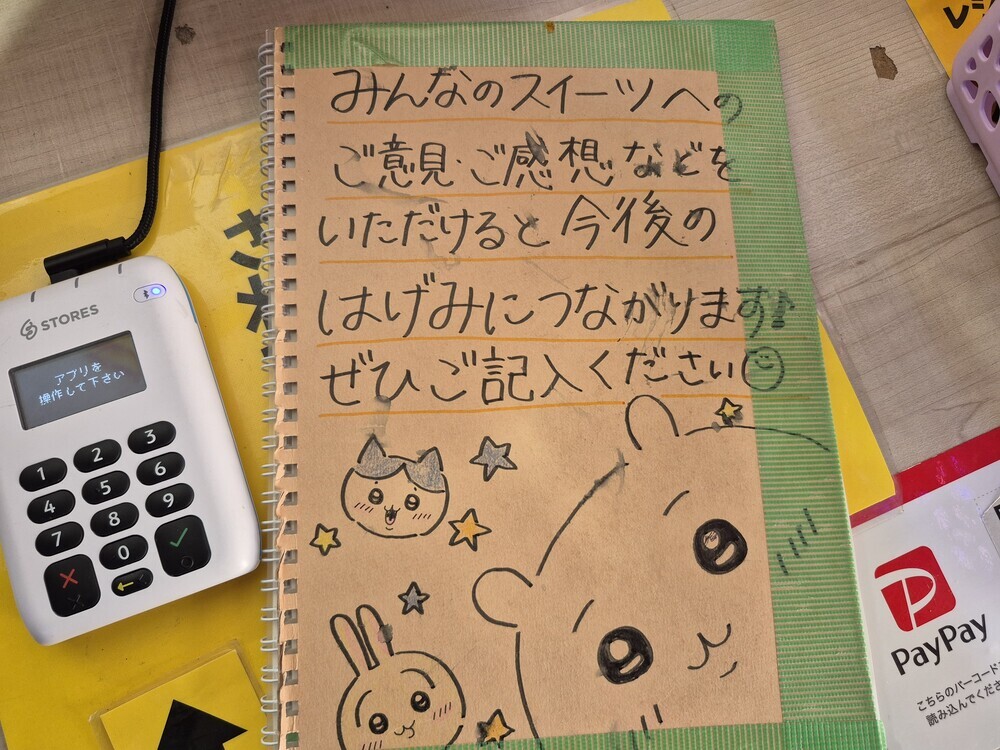 みんなのスイーツへの
ご意見・ご感想などを
いただけると今後の
はげみにつながります♪
ぜひご記入ください
STORES
アプリを
操作して下さい
1 2 3
4 5 6
7 8 9
0
PayPay
こちらのバーコード
読み込んでくださ